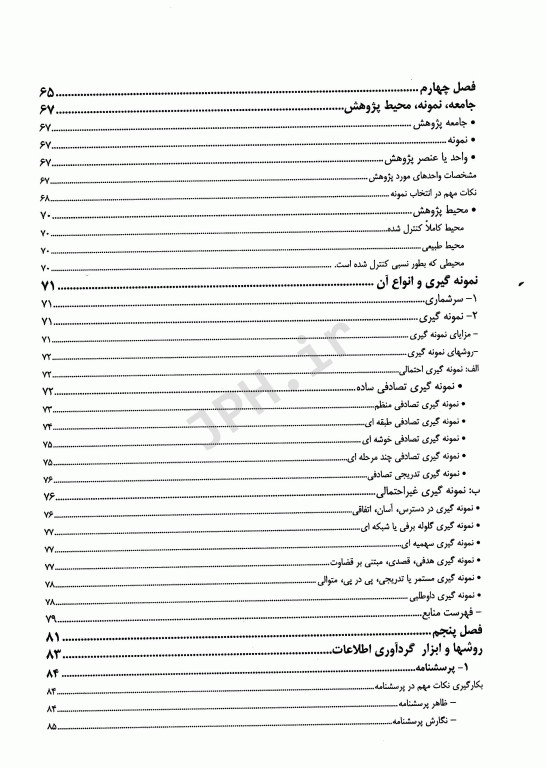 فصل چهارم ........ ۶۵
جامعه، نمونه، محیط پژوهش ........ ۶۷
• جامعه پژوهش ........ ۶۷
• نمونه ........ ۶۷
• واحد یا عنصر پژوهش ........ ۶۷
مشخصات واحدهای مورد پژوهش ........ ۶۷
نکات مهم در انتخاب نمونه ........ ۶۸
• محیط پژوهش ........ ۷۰
محیط کاملاً کنترل شده ........ ۷۰
محیط طبیعی ........ ۷۰
محیطی که بطور نسبی کنترل شده است. ........ ۷۰
نمونه گیری و انواع آن ........ ۷۱
۱- سرشماری ........ ۷۱
۲- نمونه گیری ........ ۷۱
- مزایای نمونه گیری ........ ۷۱
-روشهای نمونه گیری ........ ۷۲
الف: نمونه گیری احتمالی ........ ۷۲
• نمونه گیری تصادفی ساده ........ ۷۲
• نمونه گیری تصادفی منظم ........ ۷۳
• نمونه گیری تصادفی طبقه ای ........ ۷۴
• نمونه گیری تصادفی خوشه ای ........ ۷۵
• نمونه گیری تصادفی چند مرحله ای ........ ۷۵
• نمونه گیری تدریجی تصادفی ........ ۷۶
ب: نمونه گیری غیراحتمالی ........ ۷۶
• نمونه گیری در دسترس، آسان، اتفاقی ........ ۷۶
• نمونه گیری گلوله برفی یا شبکه ای ........ ۷۷
• نمونه گیری سهمیه ای ........ ۷۷
• نمونه گیری هدفی، قصدی، مبتنی بر قضاوت ........ ۷۷
• نمونه گیری مستمر یا تدریجی، پی در پی، متوالی ........ ۷۸
• نمونه گیری داوطلبی ........ ۷۸
- فهرست منابع ........ ۷۹
فصل پنجم ........ ۸۱
روشها و ابزار گردآوری اطلاعات ........ ۸۳
۱- پرسشنامه ........ ۸۴
بکارگیری نکات مهم در پرسشنامه ........ ۸۴
- ظاهر پرسشنامه ........ ۸۴
- نگارش پرسشنامه ........ ۸۵
JPH.ir